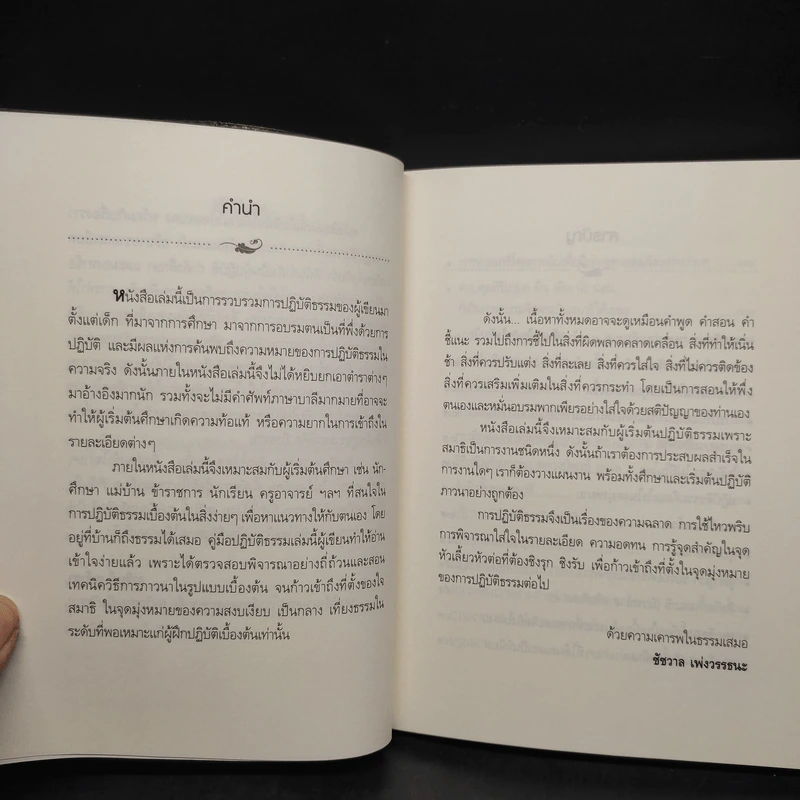 คำนำ
หนังสือเล่มนี้เป็นการรวบรวมการปฏิบัติธรรมของผู้เขียนมา
ตั้งแต่เด็ก ที่มาจากการศึกษา มาจากการอบรมตนเป็นที่พึ่งด้วยการ
ปฏิบัติ และมีผลแห่งการค้นพบถึงความหมายของการปฏิบัติธรรมใน
ความจริง ดังนั้นภายในหนังสือเล่มนี้จึงไม่ได้หยิบยกเอาตำราต่างๆ
มาอ้างอิงมากนัก รวมทั้งจะไม่มีคำศัพท์ภาษาบาลีมากมายที่อาจจะ
ทำให้ผู้เริ่มต้นศึกษาเกิดความท้อแท้ หรือความยากในการเข้าถึงใน
รายละเอียดต่างๆ
ภายในหนังสือเล่มนี้จึงเหมาะสมกับผู้เริ่มต้นศึกษา เช่น นัก-
ศึกษา แม่บ้าน ข้าราชการ นักเรียน ครูอาจารย์ ฯลฯ ที่สนใจใน
การปฏิบัติธรรมเบื้องต้นในสิ่งง่ายๆ เพื่อหาแนวทางให้กับตนเอง โดย
อยู่ที่บ้านก็ถึงธรรมได้เสมอ คู่มือปฏิบัติธรรมเล่มนี้ผู้เขียนทำให้อ่าน
เข้าใจง่ายแล้ว เพราะได้ตรวจสอบพิจารณาอย่างถี่ถ้วนและสอน
เทคนิควิธีการภาวนาในรูปแบบเบื้องต้น จนก้าวเข้าถึงที่ตั้งของใจ
สมาธิ ในจุดมุ่งหมายของความสงบเงียบ เป็นกลาง เที่ยงธรรมใน
ระดับที่พอเหมาะแก่ผู้ฝึกปฏิบัติเบื้องต้นเท่านั้น
ดังนั้น... เนื้อหาทั้งหมดอาจจะดูเหมือนคำพูด คำสอน คำ
ชี้แนะ รวมไปถึงการชี้ไปในสิ่งที่ผิดพลาดคลาดเคลื่อน สิ่งที่ทำให้เนิ่น
ช้า สิ่งที่ควรปรับแต่ง สิ่งที่ละเลย สิ่งที่ควรใส่ใจ สิ่งที่ไม่ควรติดข้อง
สิ่งที่ควรเสริมเพิ่มเติมในสิ่งที่ควรกระทำ โดยเป็นการสอนให้พึ่ง
ตนเองและหมั่นอบรมพากเพียรอย่างใส่ใจด้วยสติปัญญาของท่านเอง
หนังสือเล่มนี้จึงเหมาะสมกับผู้เริ่มต้นปฏิบัติธรรมเพราะ
สมาธิเป็นการงานชนิดหนึ่ง ดังนั้นถ้าเราต้องการประสบผลสำเร็จใน
การงานใดๆ เราก็ต้องวางแผนงาน พร้อมทั้งศึกษาและเริ่มต้นปฏิบัติ
ภาวนาอย่างถูกต้อง
การปฏิบัติธรรมจึงเป็นเรื่องของความฉลาด การใช้ไหวพริบ
การพิจารณาใส่ใจในรายละเอียด ความอดทน การรู้จุดสำคัญในจุด
หัวเลี้ยวหัวต่อที่ต้องชิงรุก ชิงรับ เพื่อก้าวเข้าถึงที่ตั้งในจุดมุ่งหมาย
ของการปฏิบัติธรรมต่อไป
ด้วยความเคารพในธรรมเสมอ
ชัชวาล เพ่งวรรธนะ